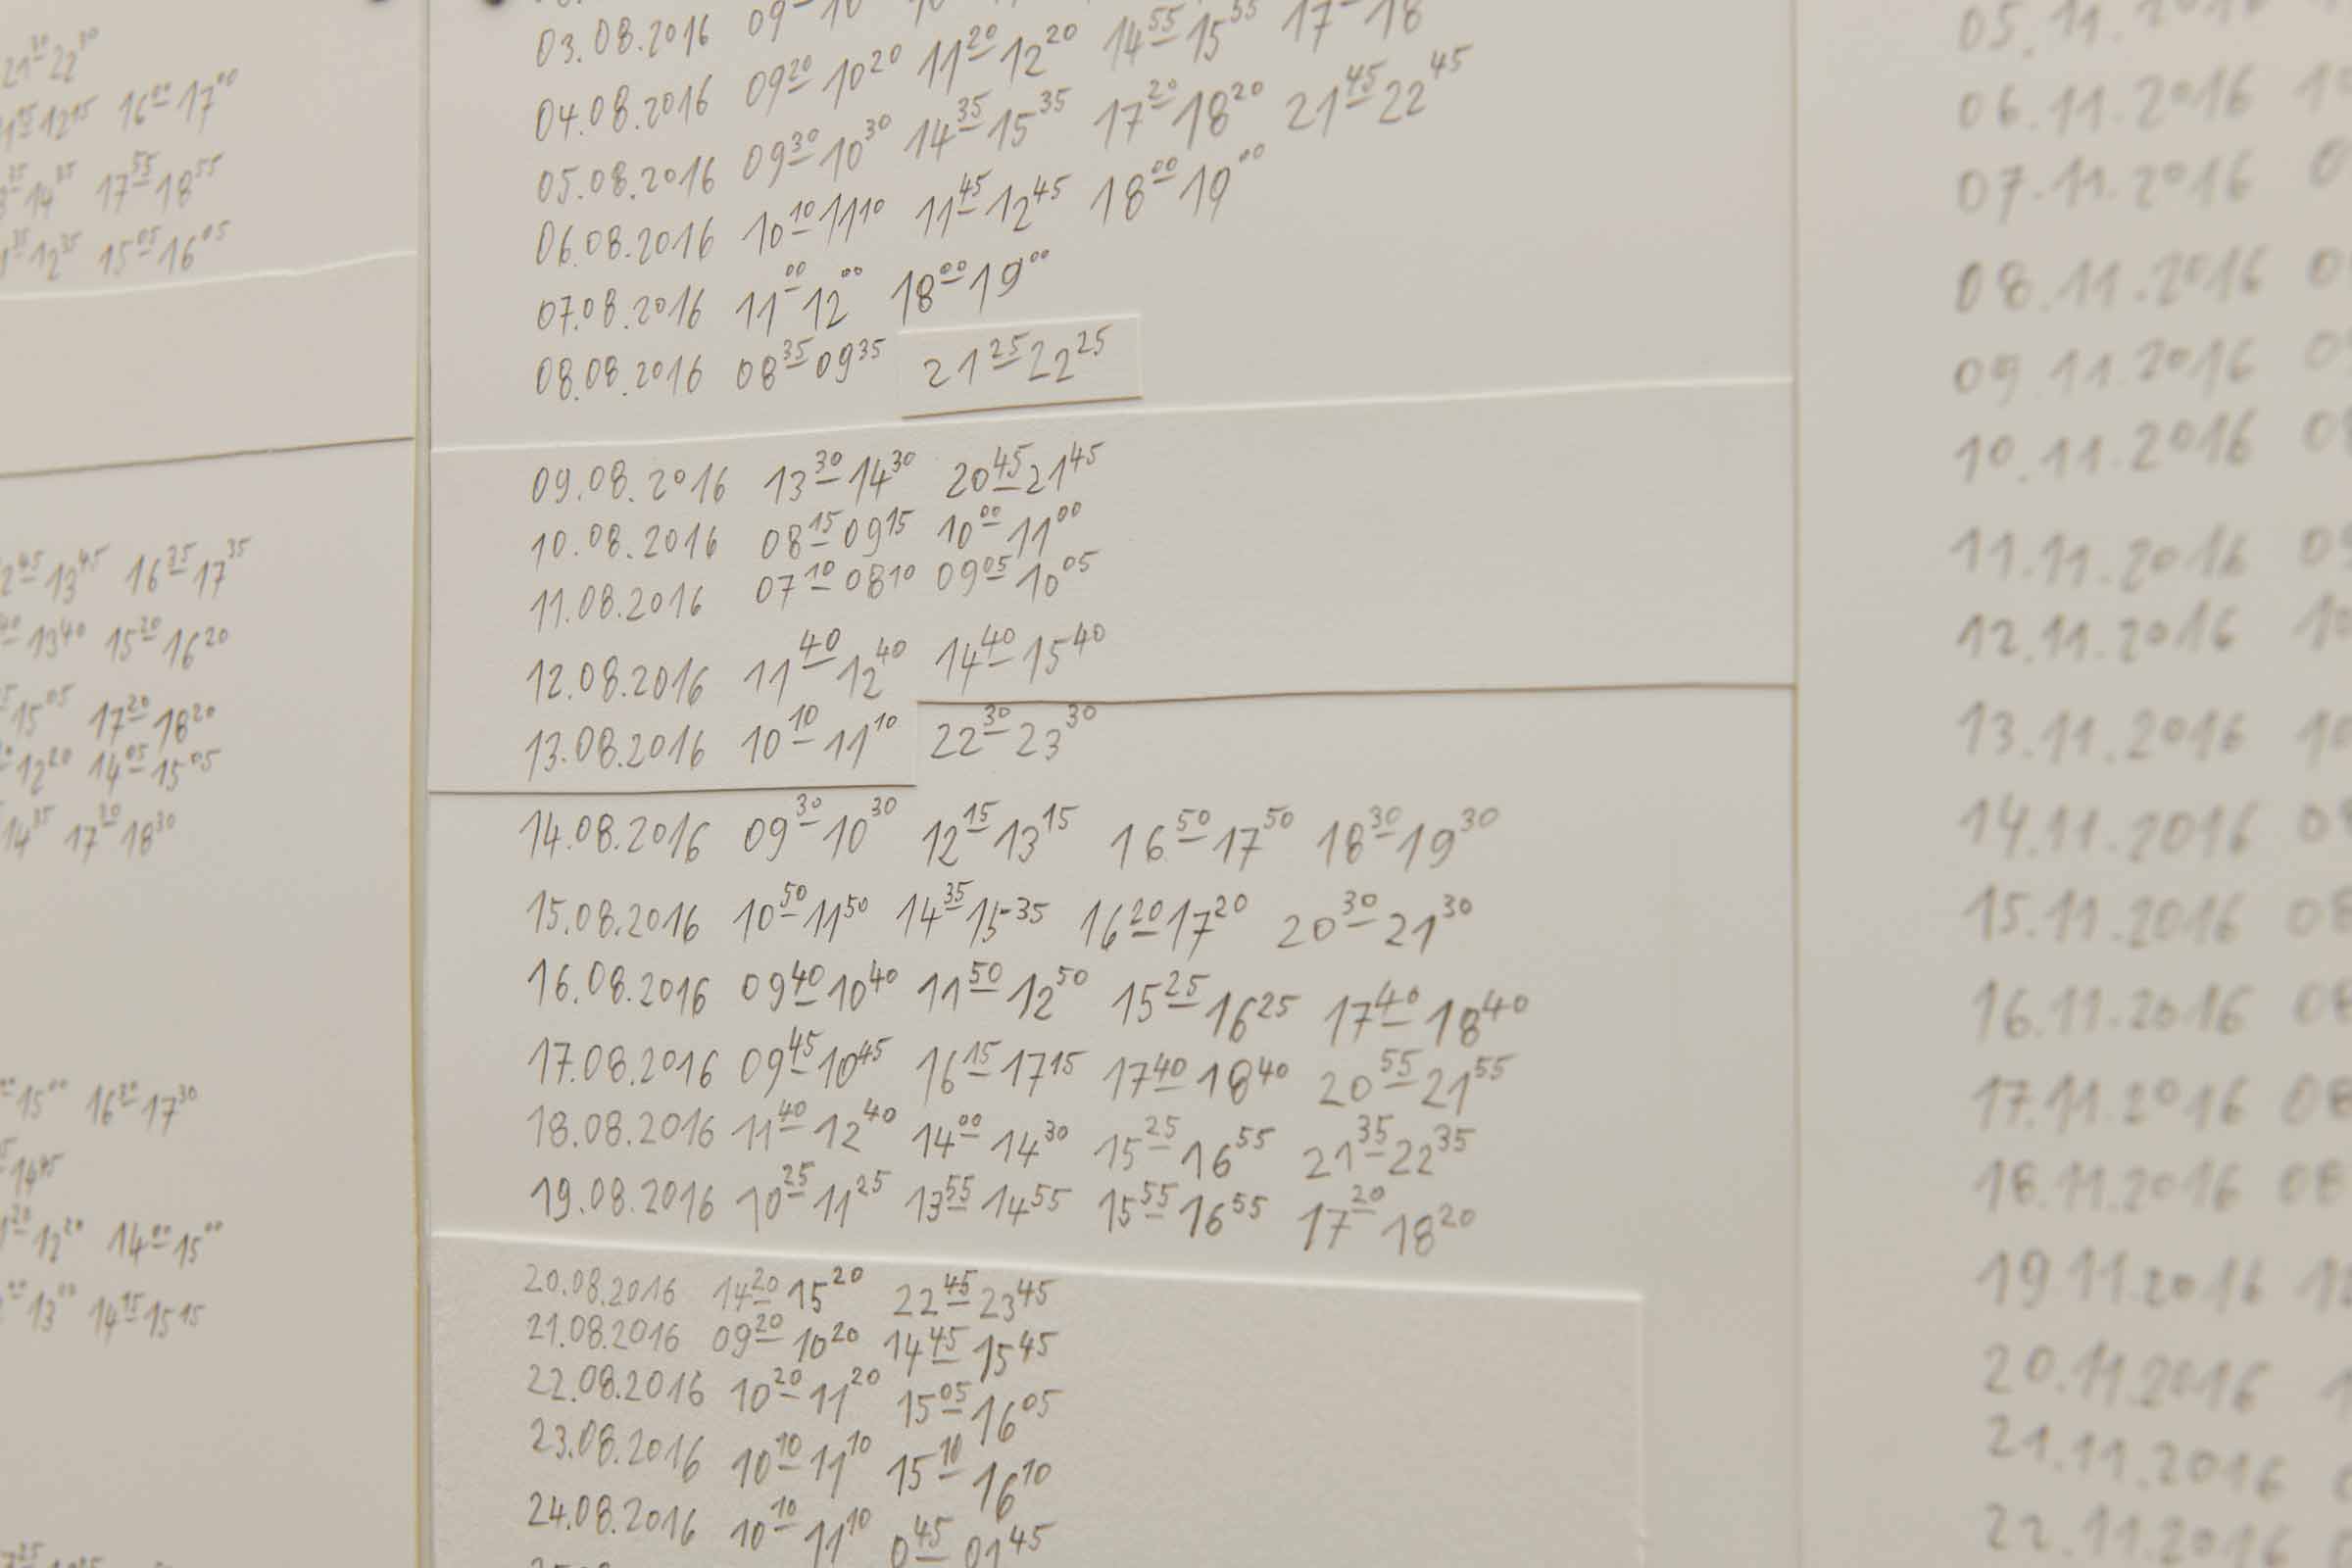 21³⁰ 22³⁰
12¹⁵ 16⁰⁰ 17⁰⁰
14³⁵ 17⁵⁵ 18⁵⁵
12³⁵ 15⁰⁵ 16⁰⁵
13⁴⁵ 16³⁵ 17³⁵
13⁴⁰ 15²⁰ 16²⁰
15⁰⁵ 17²⁰ 18²⁰
12²⁰ 14⁰⁵ 15⁰⁵
14³⁵ 17³⁰ 18³⁰
15⁰⁰ 16³⁰ 17³⁰
14⁴⁵
12²⁰ 14⁰⁰ 15⁰⁰
13⁰⁰ 14¹⁵ 15¹⁵
03.08.2016
04.08.2016 09²⁰ 10²⁰ 11²⁰ 12²⁰ 14⁵⁵ 15⁵⁵ 17 18
05.08.2016 09³⁰ 10³⁰ 14³⁵ 15³⁵ 17²⁰ 18²⁰ 21⁴⁵ 22⁴⁵
06.08.2016 10¹⁰ 11¹⁰ 11⁴⁵ 12⁴⁵ 18⁰⁰ 19⁰⁰
07.08.2016 11⁰⁰ 12⁰⁰ 18⁰⁰ 19⁰⁰
08.08.2016 08³⁵ 09³⁵ 21²⁵ 22²⁵
09.08.2016 13³⁰ 14³⁰ 20⁴⁵ 21⁴⁵
10.08.2016 08¹⁵ 09¹⁵ 10⁰⁰ 11⁰⁰
11.08.2016 07¹⁰ 08¹⁰ 09⁰⁵ 10⁰⁵
12.08.2016 11⁴⁰ 12⁴⁰ 14⁴⁰ 15⁴⁰
13.08.2016 10¹⁰ 11¹⁰ 22³⁰ 23³⁰
14.08.2016 09³⁰ 10³⁰ 12¹⁵ 13¹⁵ 16⁵⁰ 17⁵⁰ 18³⁰ 19³⁰
15.08.2016 10⁵⁰ 11⁵⁰ 14³⁵ 15³⁵ 16²⁰ 17²⁰ 20³⁰ 21³⁰
16.08.2016 09⁴⁰ 10⁴⁰ 11⁵⁰ 12⁵⁰ 15²⁵ 16²⁵ 17⁴⁰ 18⁴⁰
17.08.2016 09⁴⁵ 10⁴⁵ 16¹⁵ 17¹⁵ 17⁴⁰ 18⁴⁰ 20⁵⁵ 21⁵⁵
18.08.2016 11⁴⁰ 12⁴⁰ 14⁰⁰ 14³⁰ 15²⁵ 16⁵⁵ 21³⁵ 22³⁵
19.08.2016 10²⁵ 11²⁵ 13⁵⁵ 14⁵⁵ 15⁵⁵ 16⁵⁵ 17²⁰ 18²⁰
20.08.2016 14²⁰ 15²⁰ 22⁴⁵ 23⁴⁵
21.08.2016 09²⁰ 10²⁰ 14⁴⁵ 15⁴⁵
22.08.2016 10²⁰ 11²⁰ 15⁰⁵ 16⁰⁵
23.08.2016 10¹⁰ 11¹⁰ 15¹⁰ 16¹⁰
24.08.2016 10¹⁰ 11¹⁰ 0⁴⁵ 01⁴⁵
05.11.2016
06.11.2016
07.11.2016
08.11.2016
09.11.2016
10.11.2016
11.11.2016
12.11.2016
13.11.2016
14.11.2016
15.11.2016
16.11.2016
17.11.2016
18.11.2016
19.11.2016
20.11.2016
21.11.2016
22.11.2016